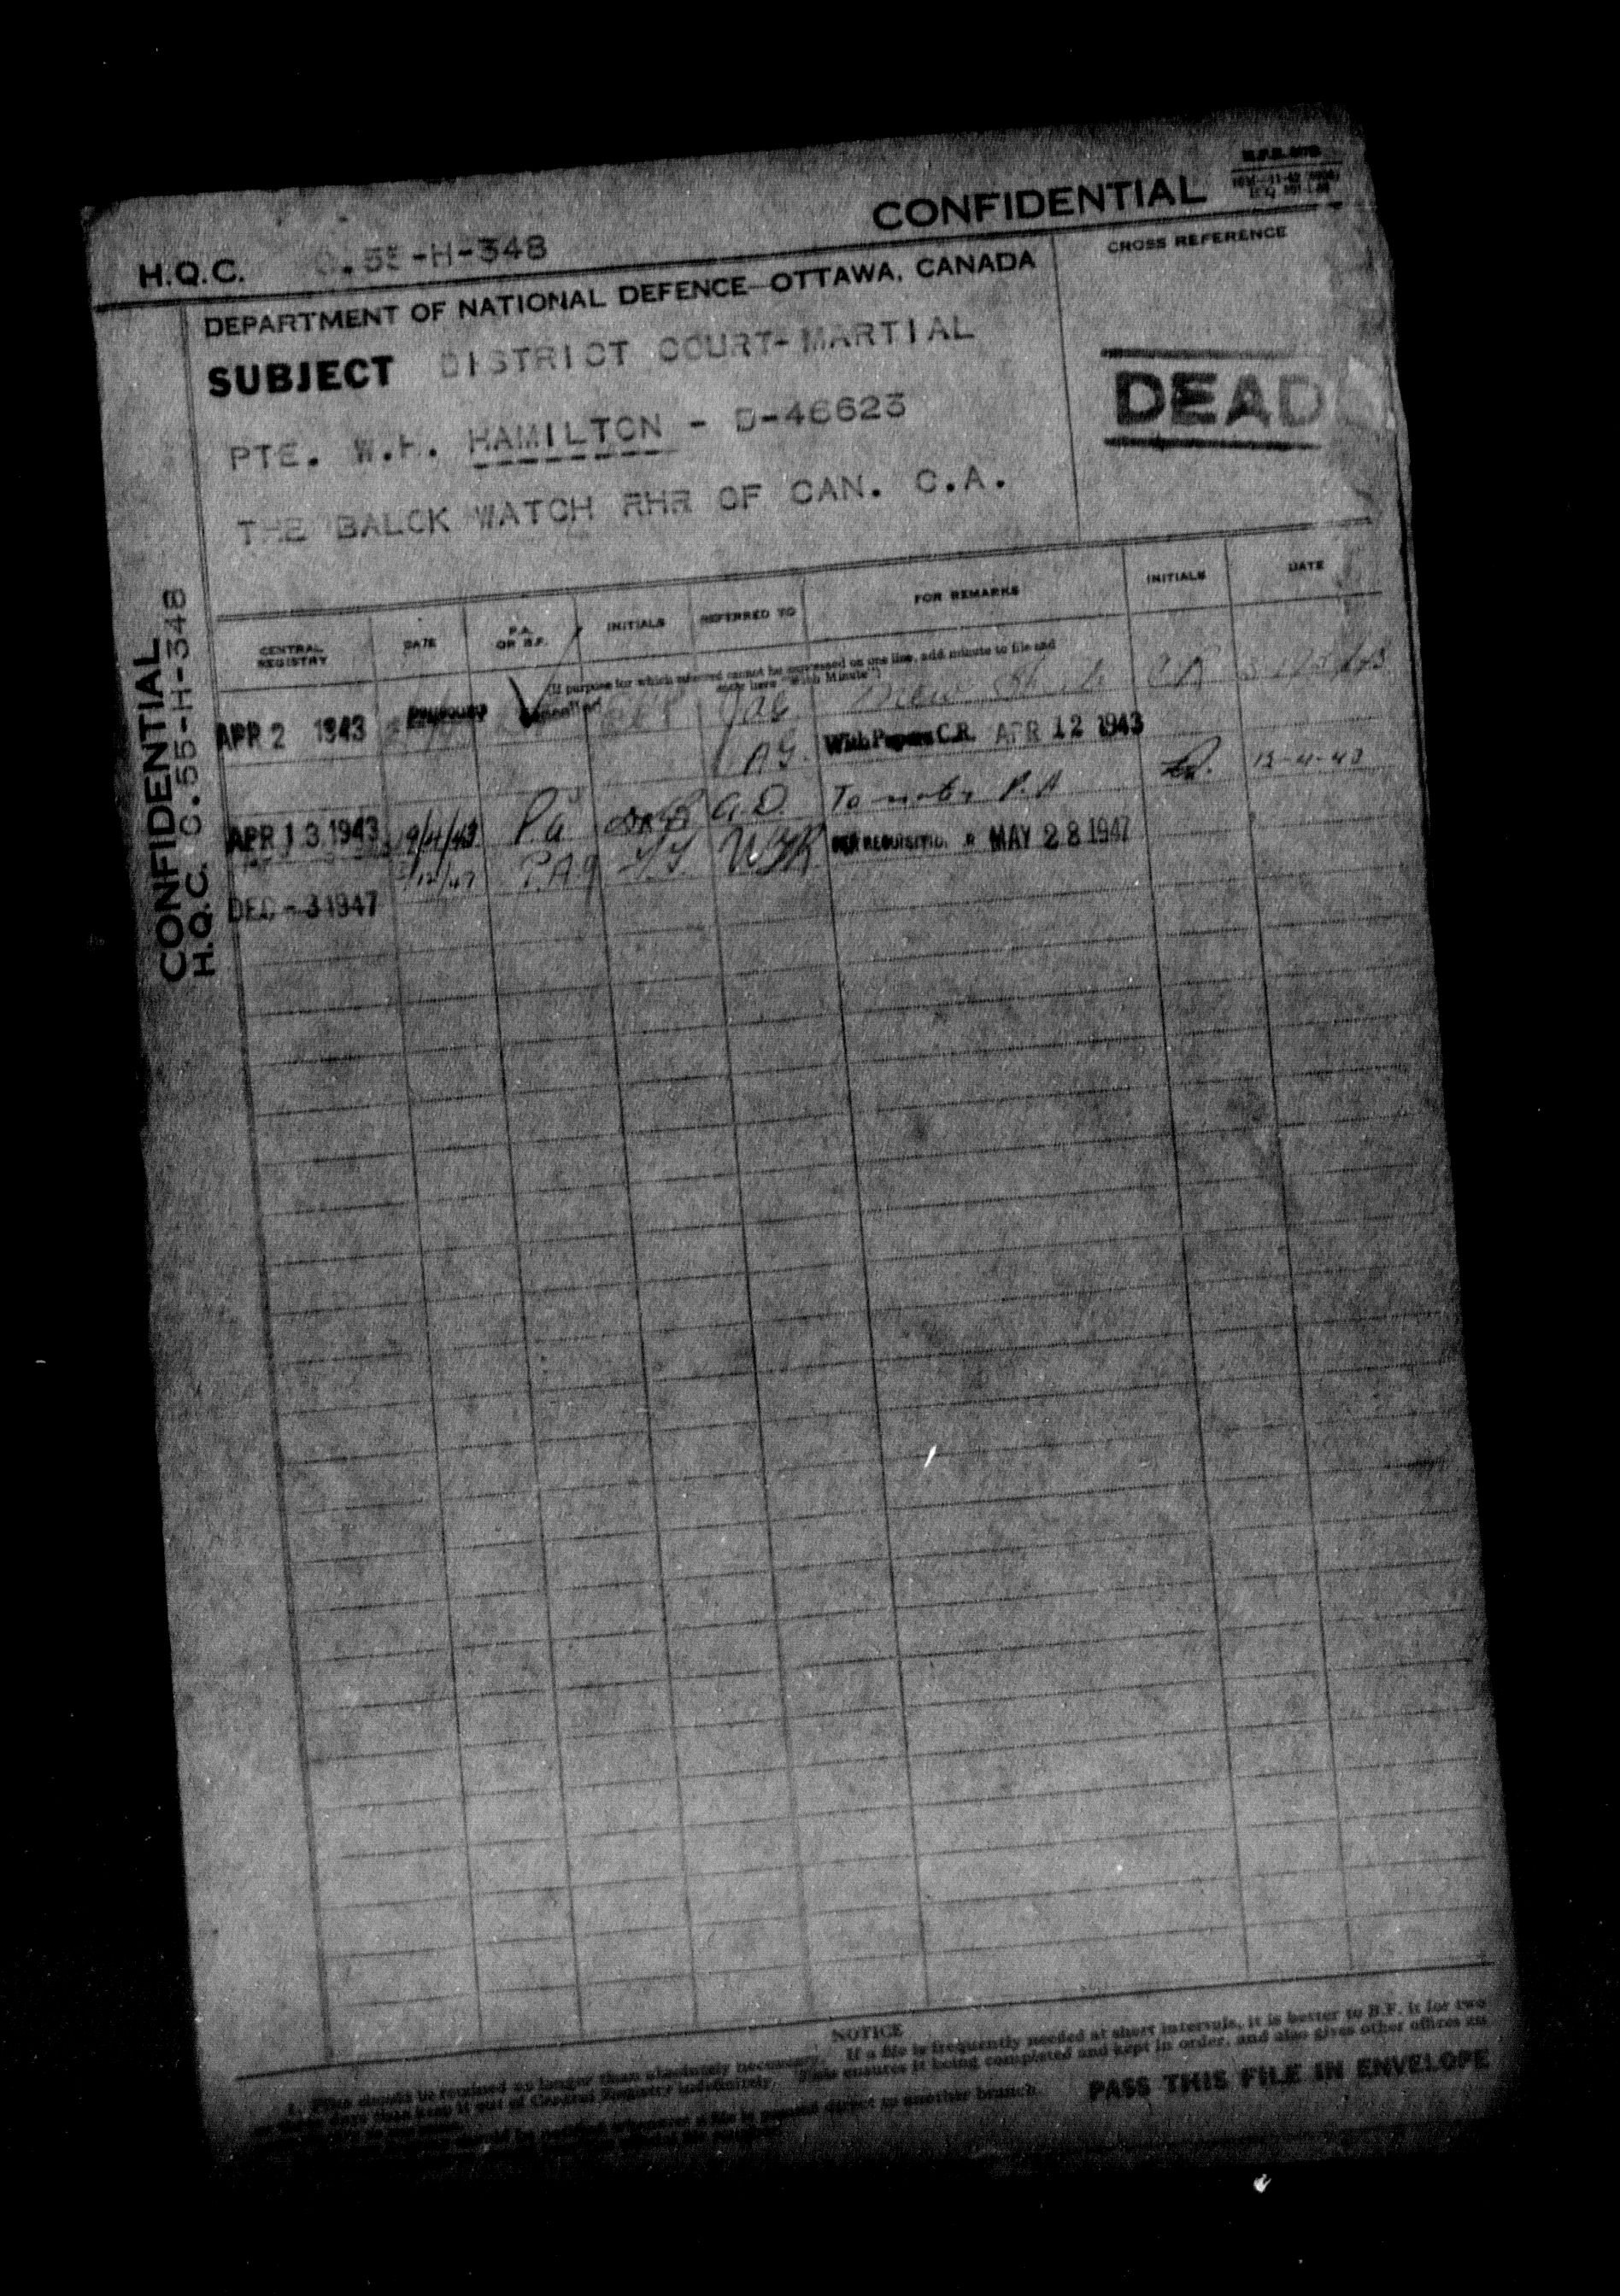 CONFIDENTIAL
H.Q.C. C.55-H-348
DEPARTMENT OF NATIONAL DEFENCE—OTTAWA, CANADA
CROSS REFERENCE
SUBJECT DISTRICT COURT-MARTIAL
DEAD
PTE. W.H. HAMILTON - D-46623
THE BALCK WATCH RHR OF CAN. C.A.
CONFIDENTIAL
H.Q.C. C.55-H-348
CENTRAL REGISTRY DATE P.A. OR B.F. INITIALS REFERRED TO FOR REMARKS INITIALS DATE
(If purpose for which referred cannot be expressed on one line, add minute to file and
enter here "With Minute")
APR 2 1943 Cancelled JAG New
AG. With Papers C.R. APR 12 1943
APR 13 1943 9/4/43 Pa A.D. To note P.A 12-4-43
DEC -3 1947 /12/47 P.A. PER REQUISITION MAY 28 1947
NOTICE
1. Files should be retained no longer than absolutely necessary. If a file is frequently needed at short intervals, it is better to B.F. it for two
or three days than keep it out of Central Registry indefinitely. This ensures it being completed and kept in order, and also gives other offices an
should be notified whenever a file is passed direct to another branch.
PASS THIS FILE IN ENVELOPE